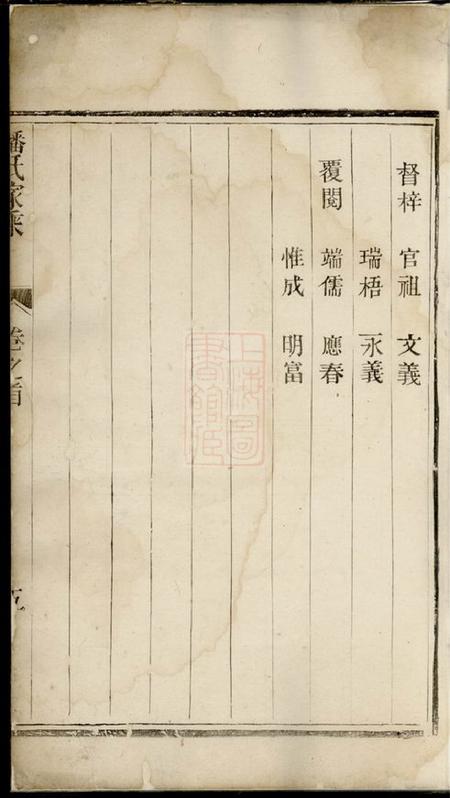 督梓 官祖 文義
瑞梧 永義
覆閱 端儒 應春
惟成 明富
潘氏家乘
卷之首
五
上海圖書館藏